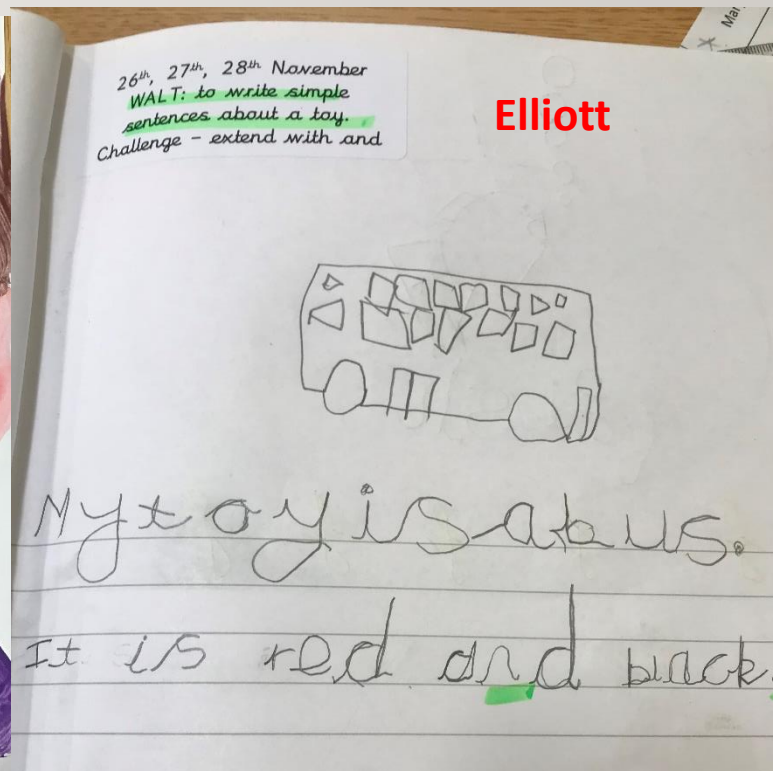 26th, 27th, 28th November
WALT: to write simple
sentences about a toy.
Challenge - extend with and
Elliott
My toy is a bus.
It is red and black.